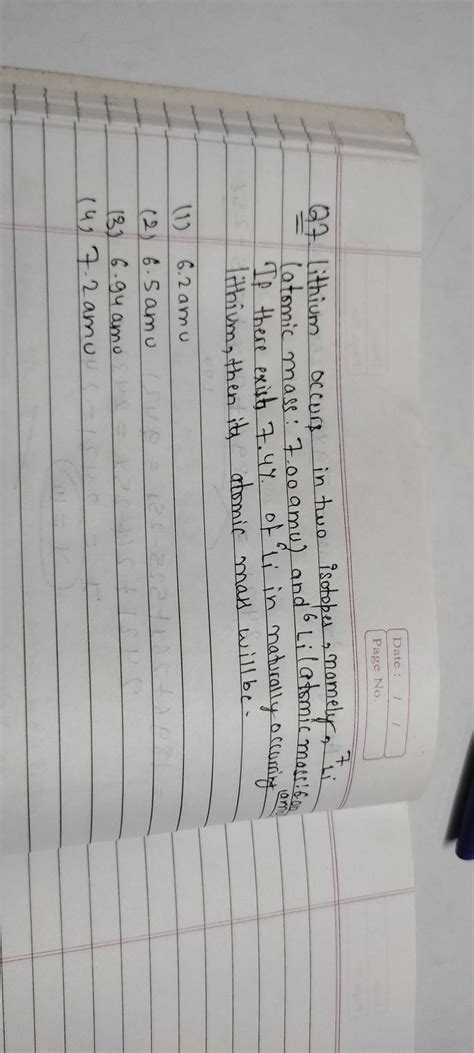 Date : / /
Page No.
Q7. Lithium occurs in two isotopes, namely, ⁷Li
(atomic mass: 7.00amu) and ⁶Li (atomic mass: 6.00
amu)
If there exists 7.4% of ⁶Li in naturally occurring
lithium, then its atomic mass will be -
(1) 6.2amu
(2) 6.5amu
(3) 6.94amu
(4) 7.2amu